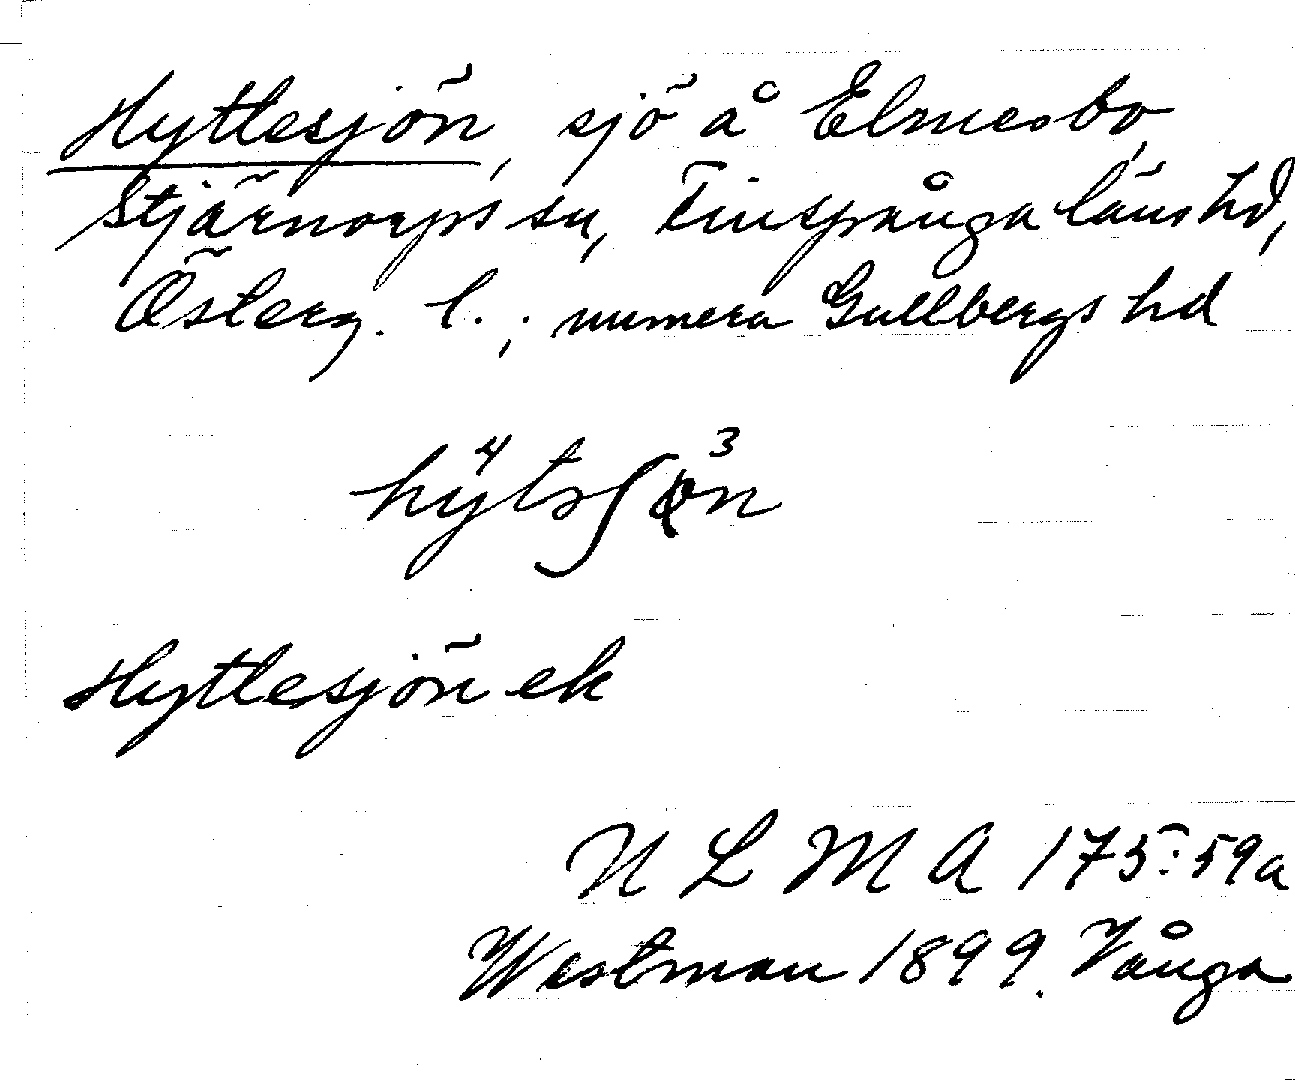 Hyttesjön, sjö å Elmesbo,
Stjärnorps sn, Finspånga läns hd,
Österg. l.; numera Gullbergs hd
hy⁴tsʃøn³
Hyttesjön ek
N L M A 175:59a
Westman 1899. Vånga